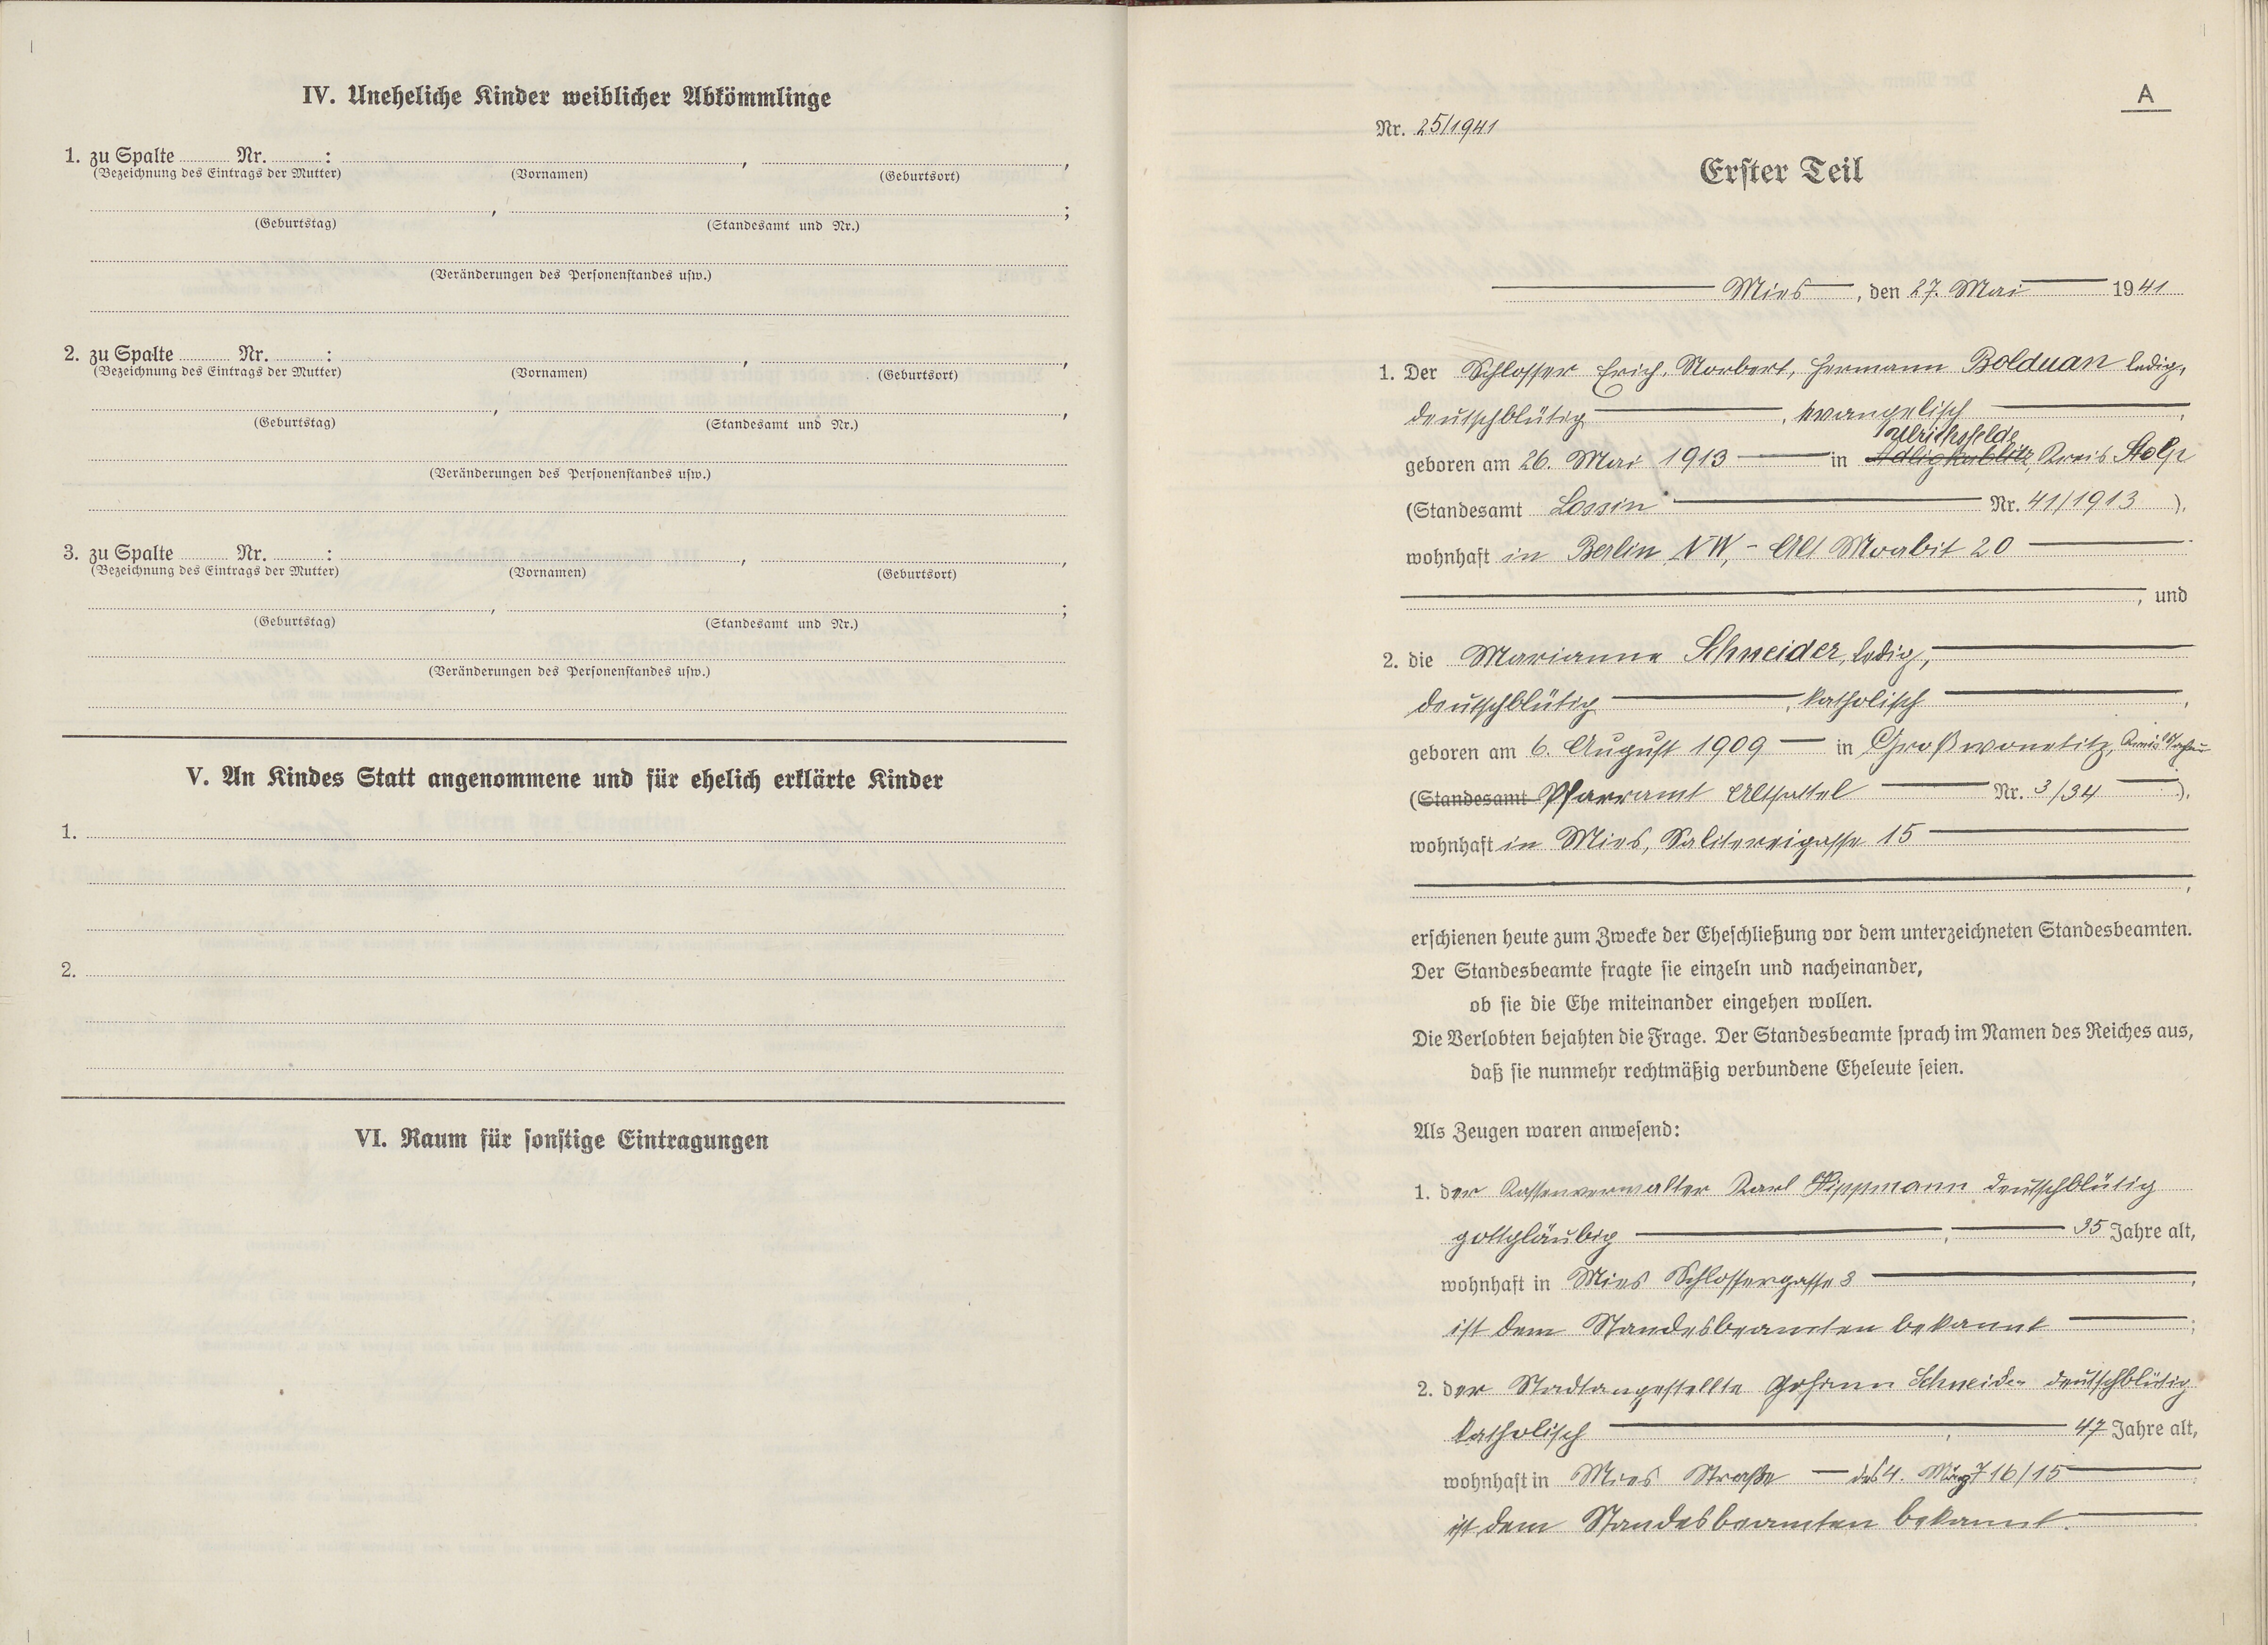 IV. Uneheliche Kinder weiblicher Abkömmlinge
1. zu Spalte Nr. : , ,
(Bezeichnung des Eintrags der Mutter) (Vornamen) (Geburtsort)
, ;
(Geburtstag) (Standesamt und Nr.)
(Veränderungen des Personenstandes usw.)
2. zu Spalte Nr. : , ,
(Bezeichnung des Eintrags der Mutter) (Vornamen) (Geburtsort)
, ,
(Geburtstag) (Standesamt und Nr.)
(Veränderungen des Personenstandes usw.)
3. zu Spalte Nr. : , ,
(Bezeichnung des Eintrags der Mutter) (Vornamen) (Geburtsort)
, ;
(Geburtstag) (Standesamt und Nr.)
(Veränderungen des Personenstandes usw.)
V. An Kindes Statt angenommene und für ehelich erklärte Kinder
1.
2.
VI. Raum für sonstige Eintragungen
A
Nr. 25/1941
Erster Teil
Mies, den 27. Mai 1941
1. Der Schlosser Erich, Norbert, Hermann Bolduan ledig,
deutschblütig, evangelisch,
Ulrichsfelde
geboren am 26. Mai 1913 in Adligkublitz, Kreis Stolp
(Standesamt Lossin Nr. 41/1913),
wohnhaft in Berlin NW, - Alt Moabit 20
, und
2. die Marianne Schneider, ledig,
deutschblütig, katholisch,
geboren am 6. August 1909 in Großwonetitz, Kreis Tachau
(Standesamt Pfarramt Altsattel Nr. 3/34),
wohnhaft in Mies, Salitereigasse 15
,
erschienen heute zum Zwecke der Eheschließung vor dem unterzeichneten Standesbeamten.
Der Standesbeamte fragte sie einzeln und nacheinander,
ob sie die Ehe miteinander eingehen wollen.
Die Verlobten bejahten die Frage. Der Standesbeamte sprach im Namen des Reiches aus,
daß sie nunmehr rechtmäßig verbundene Eheleute seien.
Als Zeugen waren anwesend:
1. der Kassenverwalter Karl Hippmann deutschblütig
gottgläubig, 35 Jahre alt,
wohnhaft in Mies Schlossergasse 3,
ist dem Standesbeamten bekannt;
2. der Stadtangestellte Johann Schneider deutschblütig
katholisch, 47 Jahre alt,
wohnhaft in Mies Straße des 4. März 716/15
ist dem Standesbeamten bekannt.